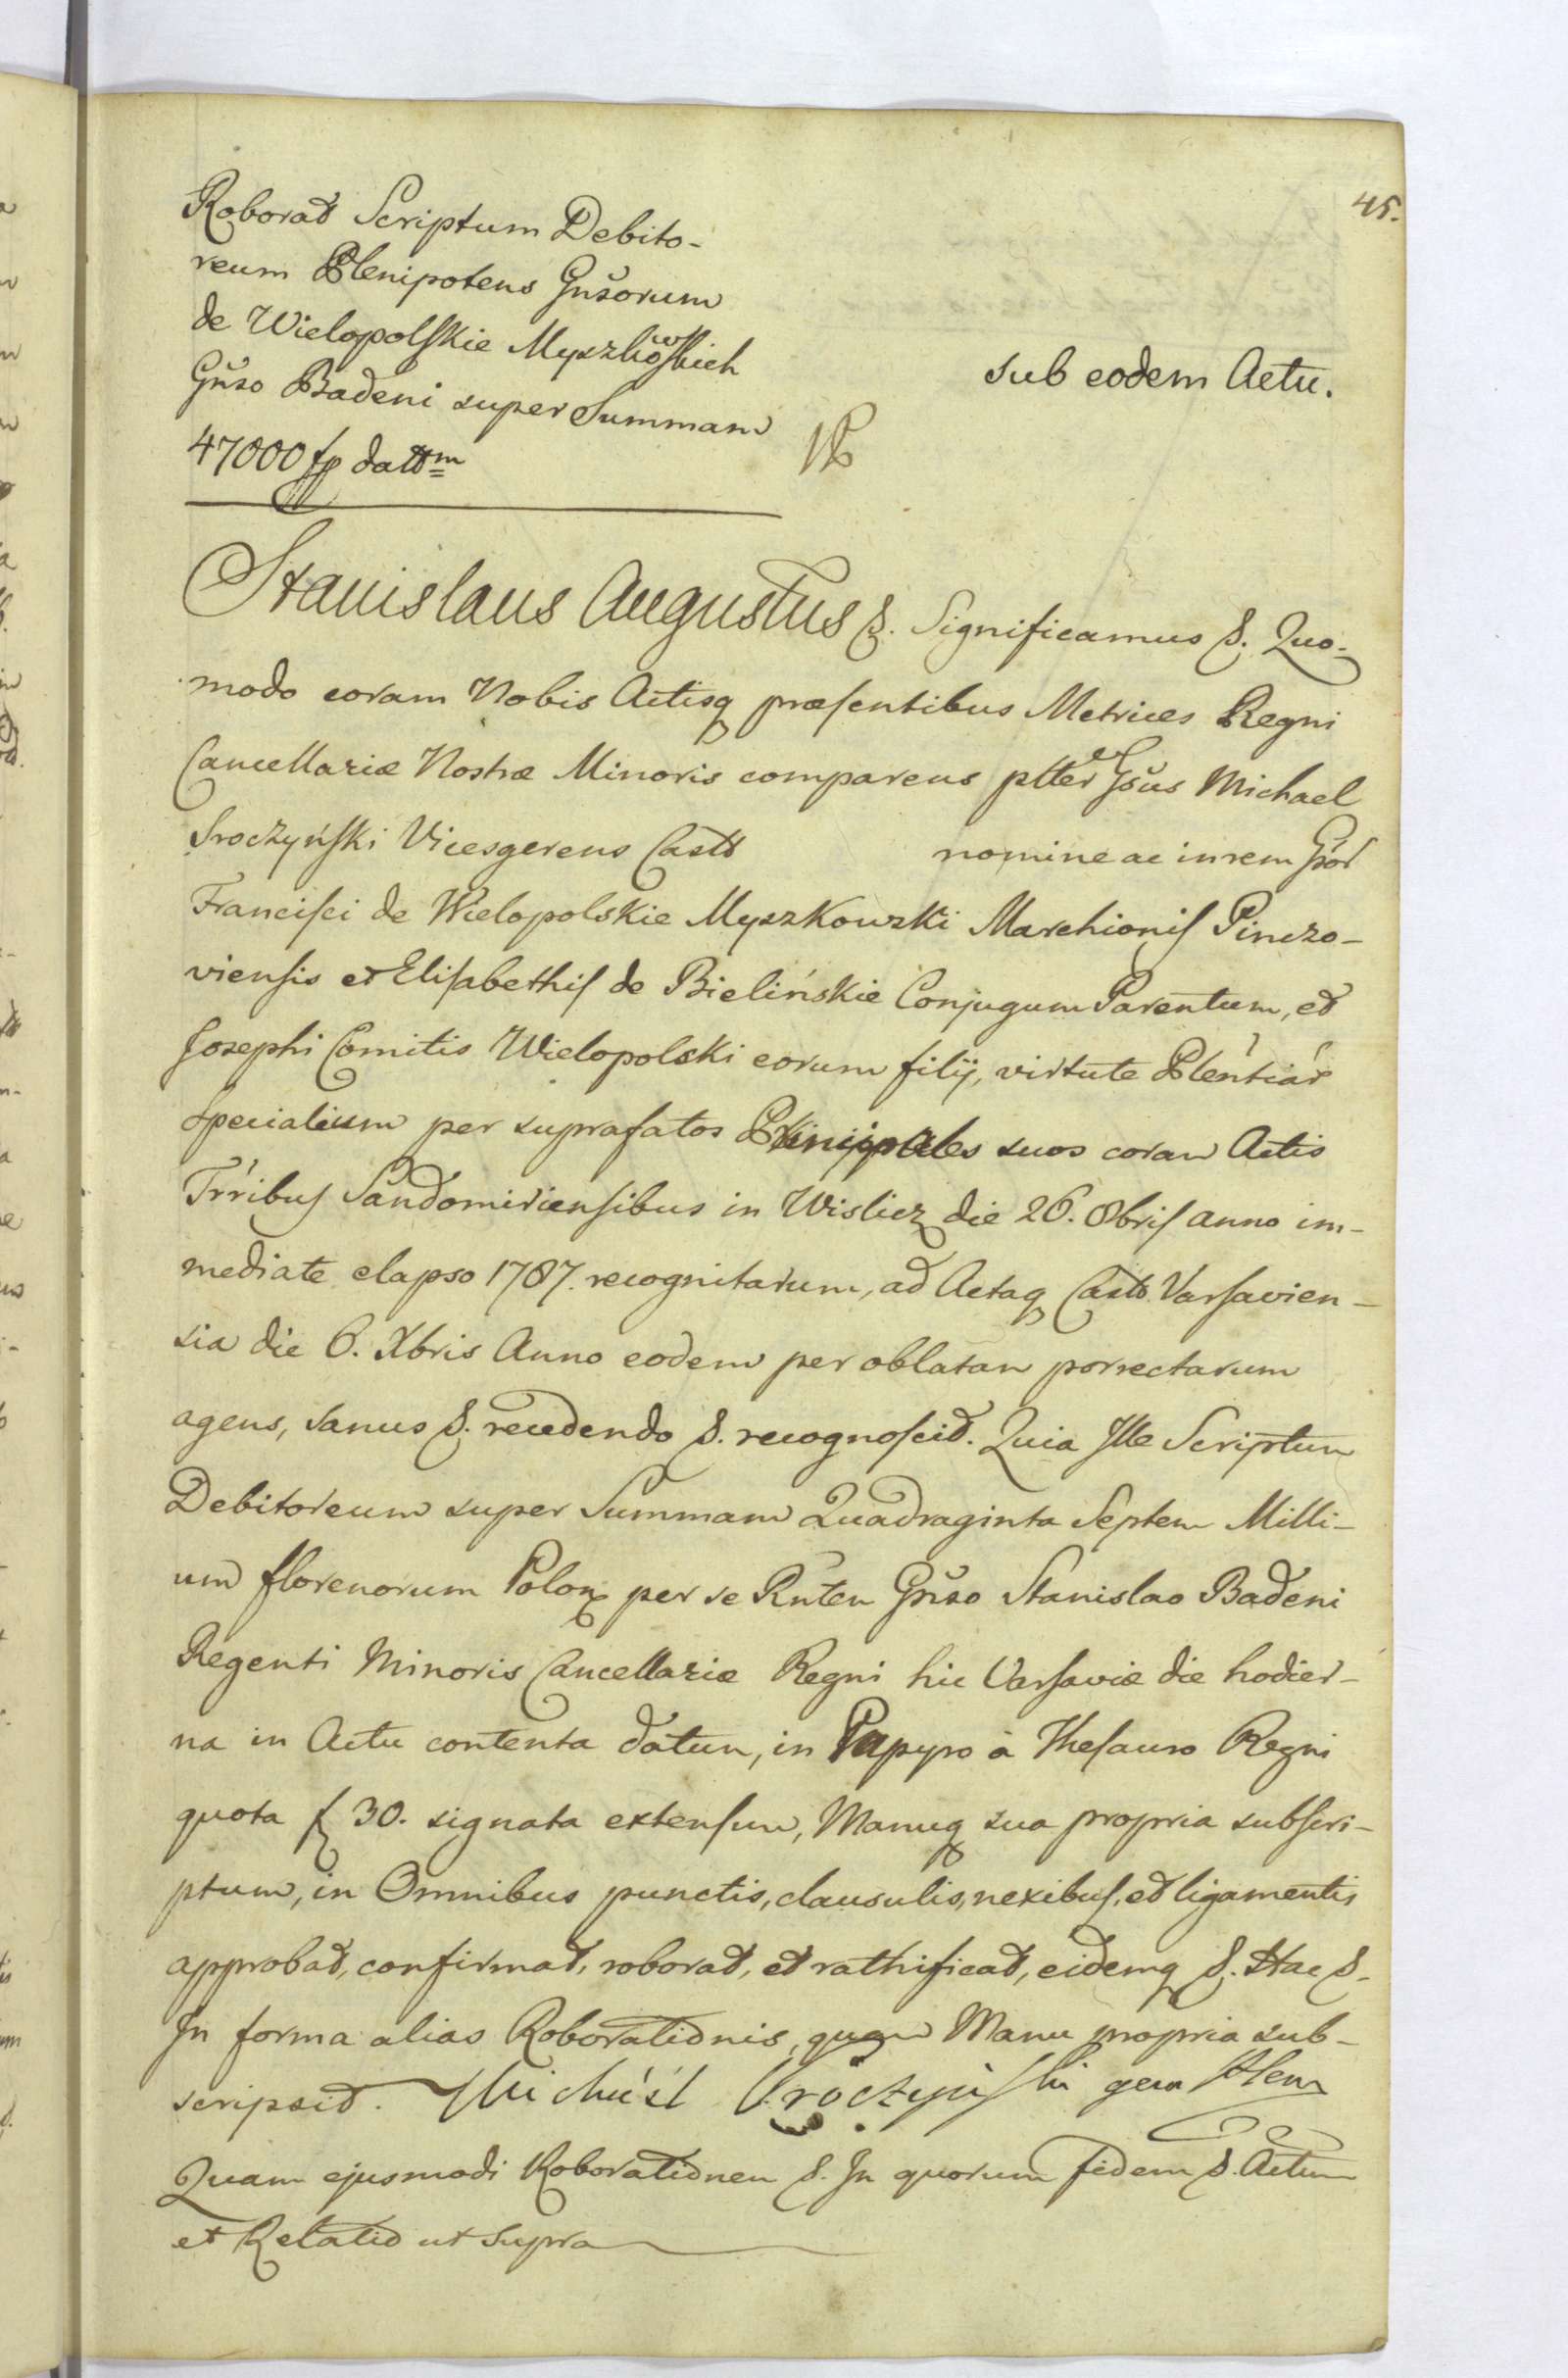 45.
Roborat Scriptum Debito-
reum Plenipotens Gnsorum
de Wielopolskie Myszkowskich
Gnso Badeni super Summam
47000 fp datt͇m
sub eodem Actu.
Stanislaus Augustus &. Significamus &. Quo-
modo coram Nobis Actisq præsentibus Metrices Regni
Cancellariæ Nostræ Minoris comparens pltter Gsus Michael
Sroczyński Vicesgerens Castt nomine ac in rem Gsor
Francisci de Wielopolskie Myszkowski Marchionis Pinczo-
viensis et Elisabethis de Bielińskie Conjugum Parentum, et
Josephi Comitis Wielopolski eorum filij, virtute Plentiar
Specialium per suprafatos Principales suos coram Actis
Trribus Sandomiriensibus in Wislicz die 26. 8bris anno im-
mediate elapso 1787. recognitarum, ad Actaq Castr. Varsavien-
sia die 6. Xbris Anno eodem per oblatam porrectarum
agens, sanus &. recedendo &. recognoscit. Quia Ille Scriptum
Debitoreum super Summam Quadraginta Septem Milli-
um florenorum Polon per se Rnten Gnso Stanislao Badeni
Regenti Minoris Cancellariæ Regni hic Varsaviæ die hodier-
na in Actu contenta datum, in Papyro à Thesauro Regni
quota f 30. signata extensum, Manuq sua propria subscri-
ptum, in Omnibus punctis, clausulis, nexibus, et ligamentis
approbat, confirmat, roborat, et rathificat, eidemq &. Hac &.
In forma alias Roborationis, quam Manu propria sub-
scripsit. Michał Sroczyński
Quam ejusmodi Roborationem &. In quorum fidem &. Actum
et Relatio ut supra